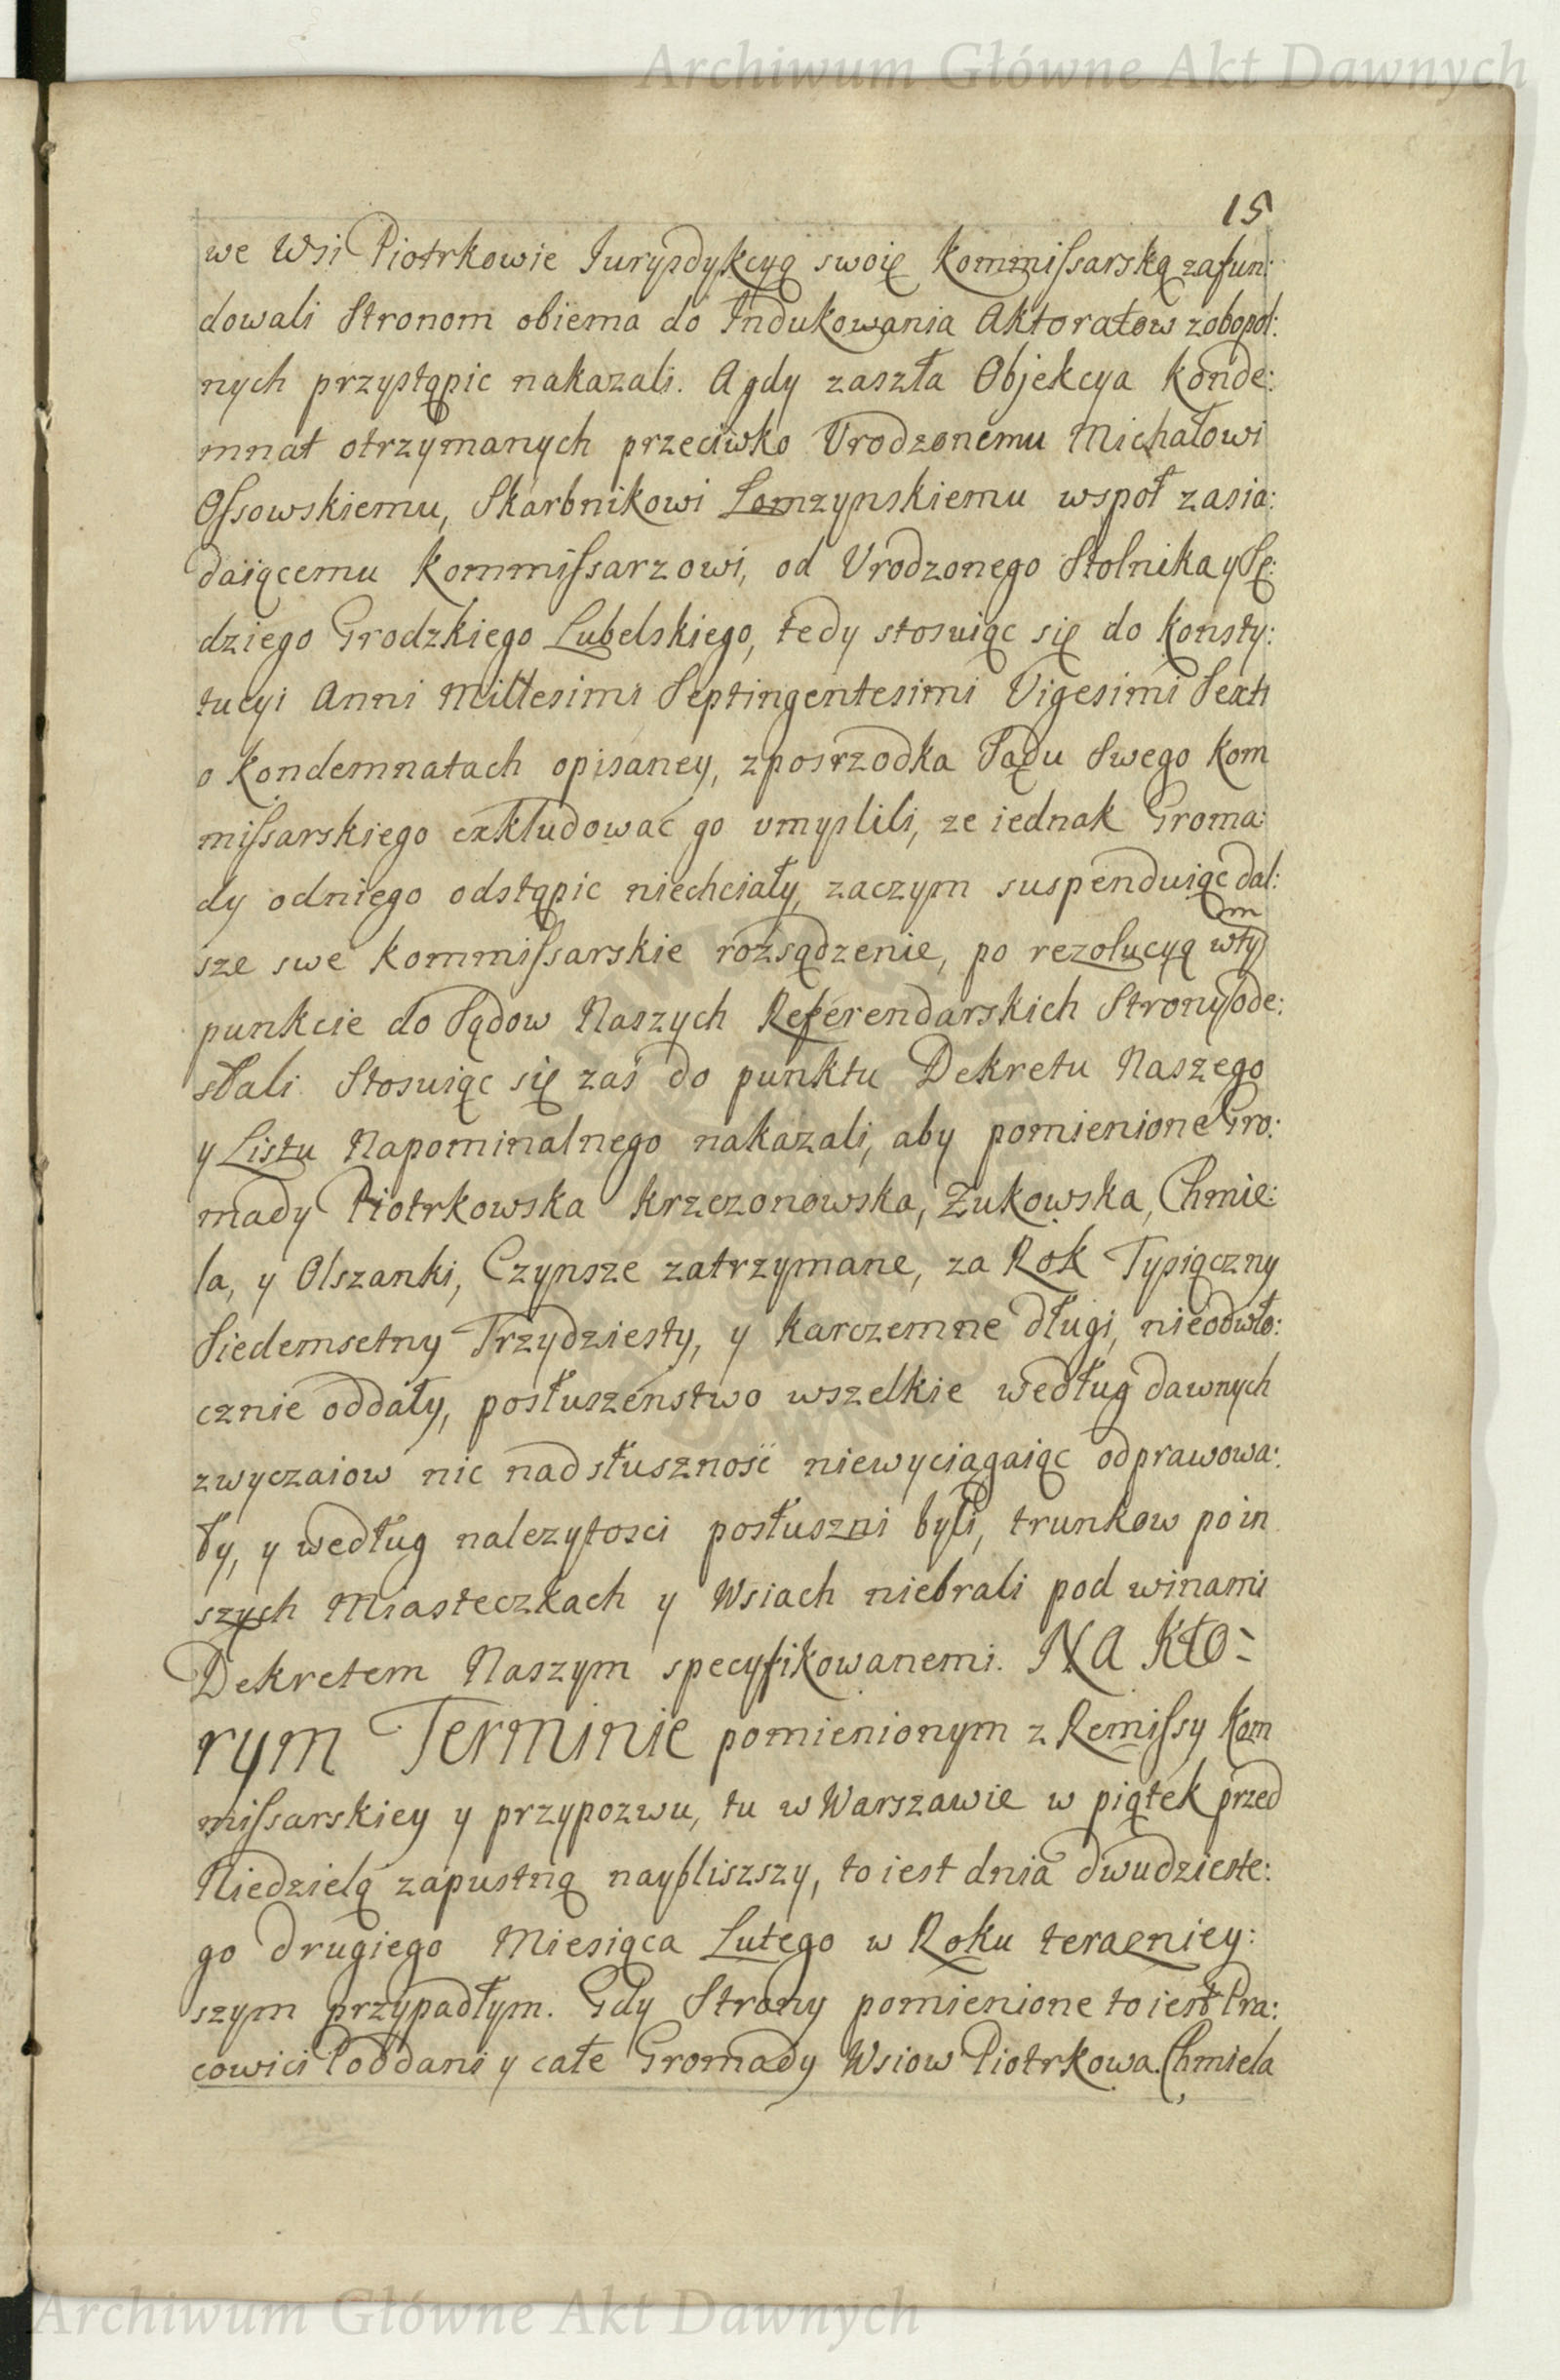 Archiwum Główne Akt Dawnych
15
we Wsi Piotrkowie Jurysdykcyą swoię Kommissarską zafun:
dowali Stronom obiema do Jndukowania Aktoratow zobopol:
nych przystąpic nakazali. A gdy zaszła Objekcya Konde:
mnat otrzymanych przeciwko Vrodzonemu Michałowi
Ossowskiemu, Skarbnikowi Łomzynskiemu wspoł zasia:
daiącemu Kommissarzowi, od Vrodzonego Stolnika y Sę:
dziego Grodzkiego Lubelskiego, tedy stosuiąc się do Konsty:
tucyi Anni Millesimi Septingentesimi Vigesimi Sexti
o Kondemnatach opisaney, zposrzodka Sądu Swego Kom
missarskiego exkludować go vmyslili, ze iednak Groma:
dy odniego odstąpic niechciały, zaczym suspenduiąc dal:
sze swe Kommissarskie rozsądzenie, po rezolucyą wtym
punkcie do Sądow Naszych Referendarskich Strony ode:
słali. Stosuiąc się zaś do punktu Dekretu Naszego
y Listu Napominalnego nakazali, aby pomienione Gro:
mady Piotrkowska Krzczonowska, Żukowska, Chmie:
la, y Olszanki, Czynsze zatrzymane, za Rok Tysiączny
Siedemsetny Trzydziesty, y karczemne długi, nieodwło:
cznie oddały, posłuszenstwo wszelkie według dawnych
zwyczaiow nic nad słusznosć niewyciągaiąc odprawowa:
ły, y według nalezytosci posłuszni byli, trunkow po in
szych Miasteczkach y Wsiach niebrali pod winami
Dekretem Naszym specyfikowanemi. NA Kto-
rym Terminie pomienionym z Remissy Kom
missarskiey y przypozwu, tu w Warszawie w piątek przed
Niedzielą zapustną naybliszszy, to iest dnia dwudzieste:
go drugiego Miesiąca Lutego w Roku teraeniey:
szym przypadłym. Gdy Strony pomienione to iest Pra:
cowici Poddani y całe Gromady Wsiow Piotrkowa, Chmiela
Archiwum Główne Akt Dawnych